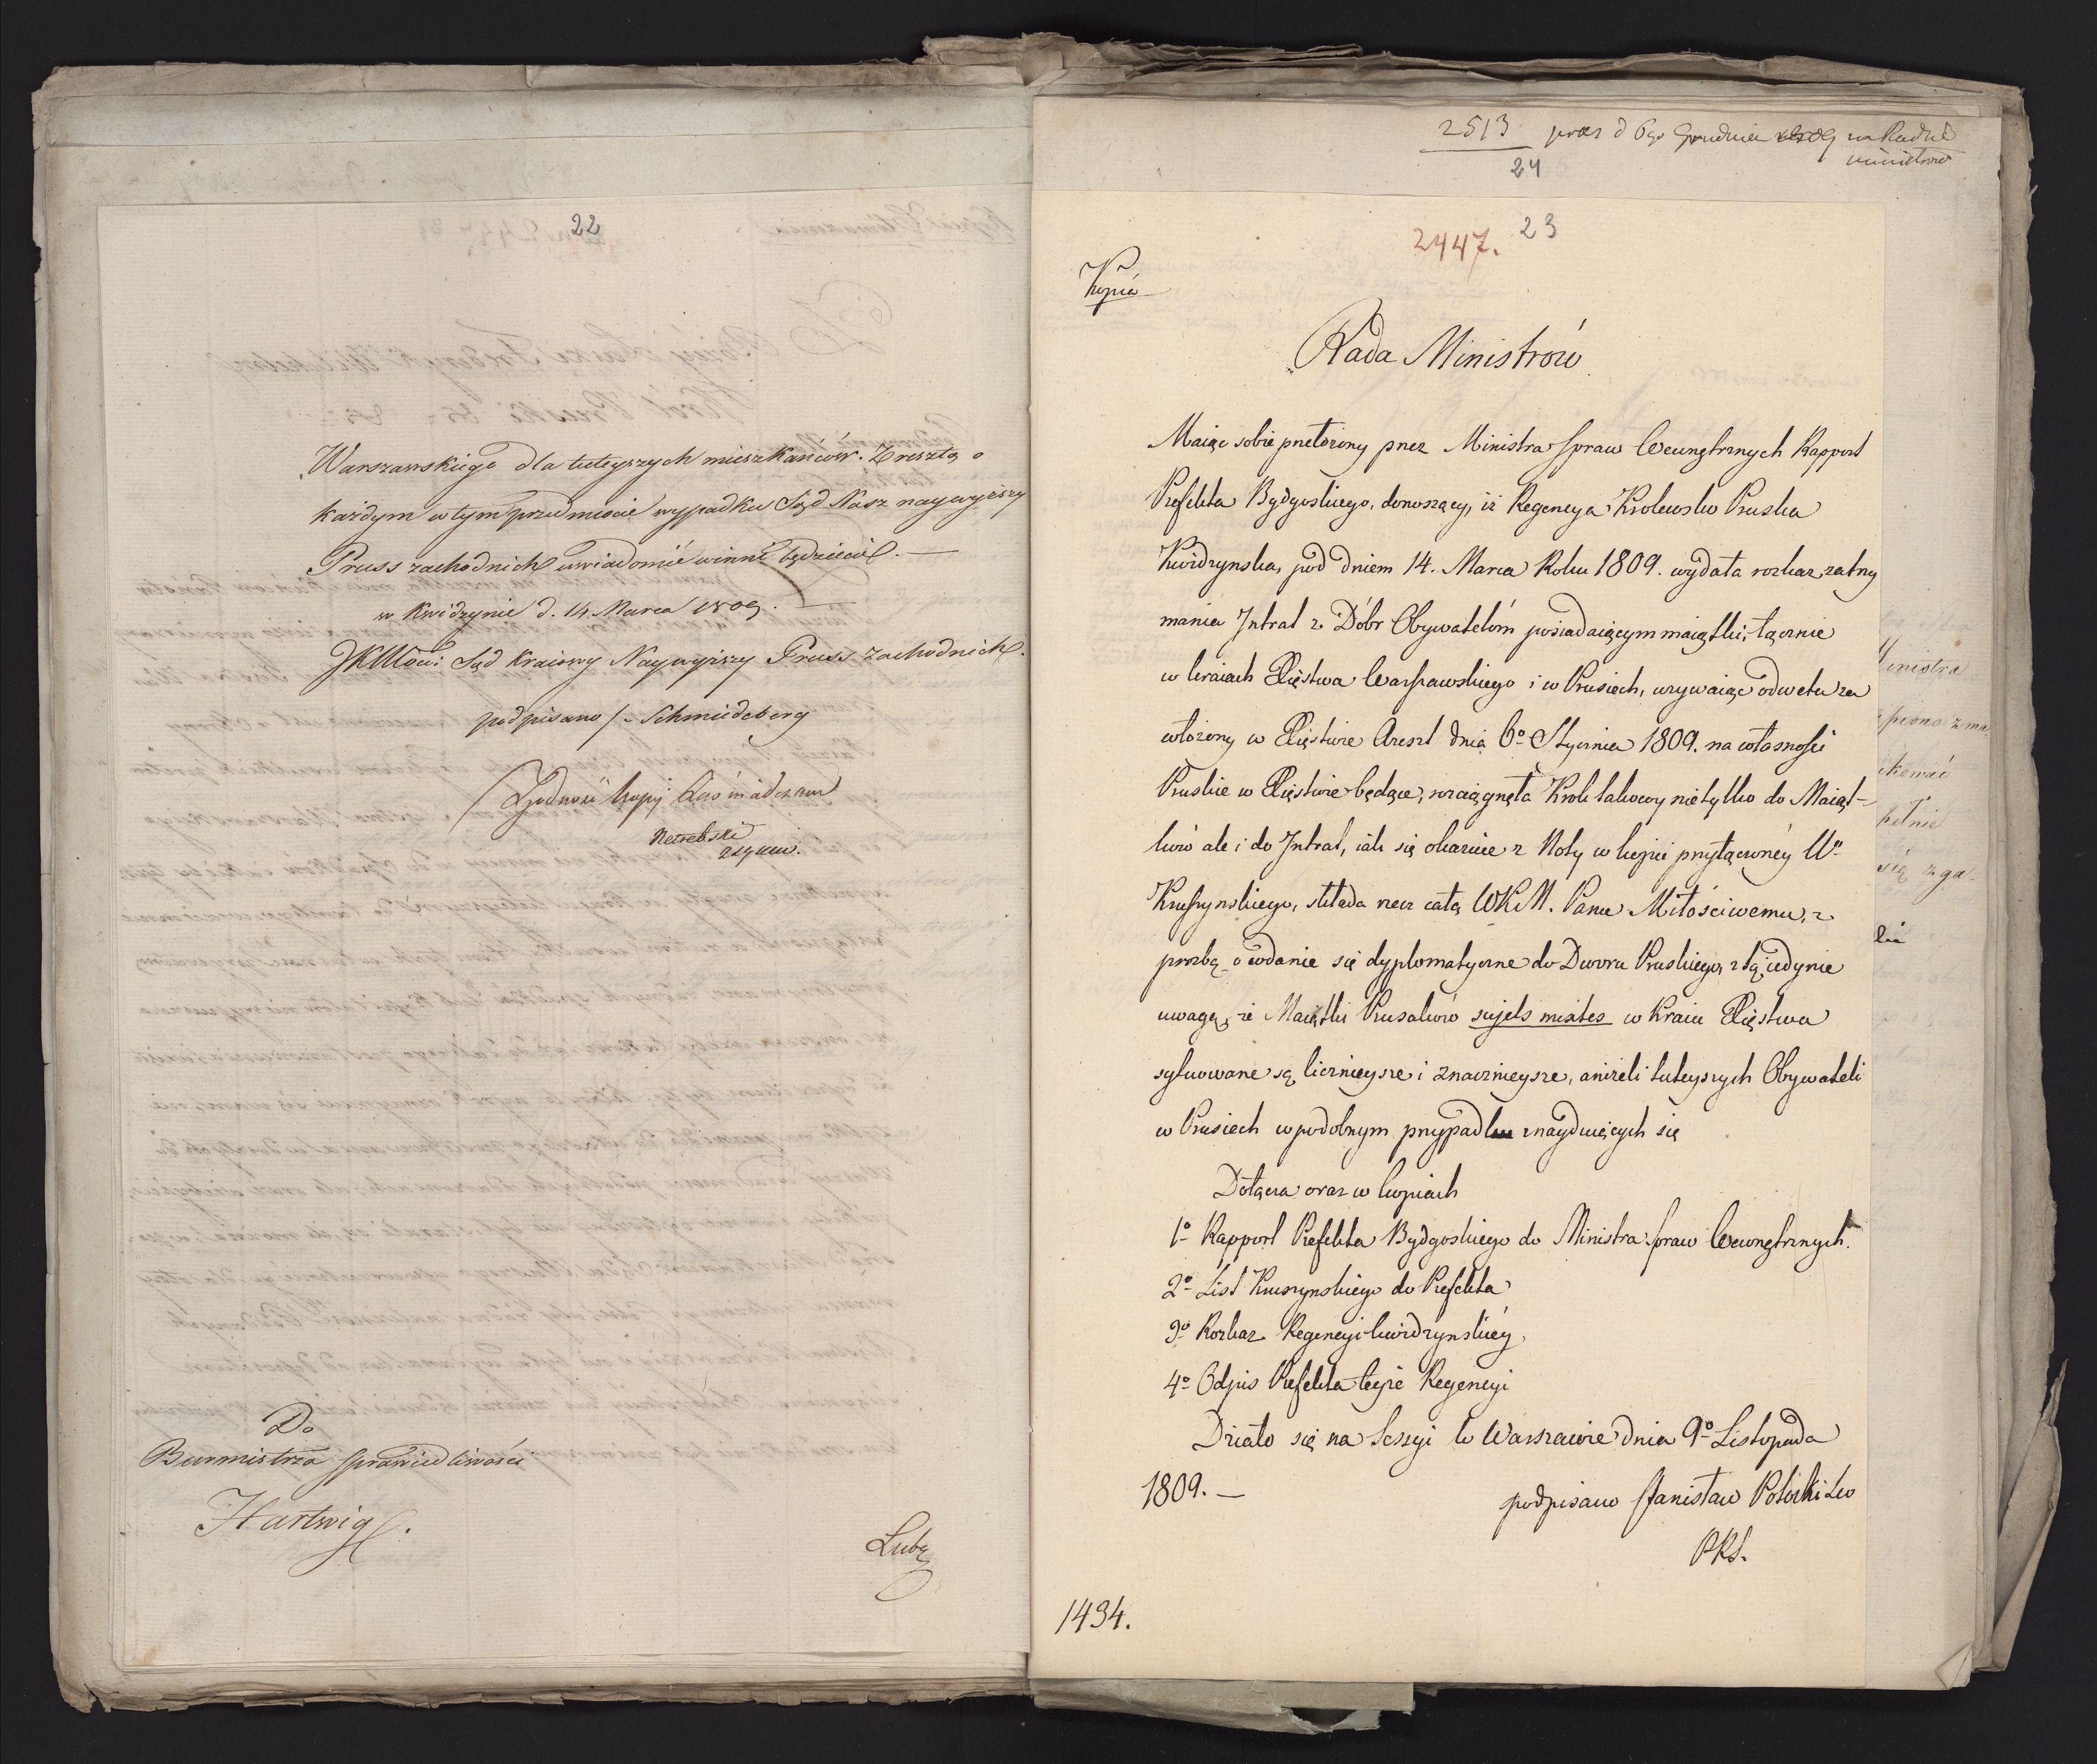 22
Warszawskiego dla tuteyszych mieszkańców. Zresztą o
każdym w tym przedmiocie wypadku Sąd Nasz naywyższy
Pruss zachodnich uwiadomić winni będziecie. —
w Kwidzynie d. 14. Marca 1809. —
JKMości Sąd Kraiowy Naywyższy Pruss zachodnich.
podpisano /- Schmiedeberg
Zgodność kopij zaświadczam
Do
Burmistrza sprawiedliwości
Hartwig.
Lubę
2513 prez d 6go Grudnia na Radzie
ministrów
24
2447. 23
Kopia
Rada Ministrów
Maiąc sobie przełożony przez Ministra Spraw Wewnętrznych Rapport
Prefekta Bydgoskiego, donoszący, iż Regencya Krolewsko Pruska
Kwidzynska, pod dniem 14. Marca Roku 1809. wydała rozkaz zatrzy
mania Intrat z Dóbr Obywatelóm posiadaiącym maiątki, łącznie
w kraiach Xięstwa Warszawskiego i w Prusiech, używaiąc odwetu za
włożony w Xięstwie Areszt dnia 6o Stycznia 1809. na własności
Pruskie w Xięstwie będące, rozciągnęła Krok takowy nietylko do Maiąt-
ków ale i do Intrat, iak się okazuie z Noty w kopii przyłączonéy Wo
Kruszynskiego, składa rzecz całą WKM. Panu Miłościwemu, z
prozbą o wdanie się dyplomatyczne do Dworu Pruskiego, z tą iedynie
uwagą, że Maiątki Prusaków sujets mixtes w Kraiu Xięstwa
sytuowane są licznieysze i znacznieysze, aniżeli tuteyszych Obywateli
w Prusiech w podobnym przypadku znayduiących się
Dołącza oraz w kopiach
1o Rapport Prefekta Bydgoskiego do Ministra Spraw Wewnętrznych.
2o List Kruszynskiego do Prefekta
3o Rozkaz Regencyi kwidzynskiéy
4o Odpis Prefekta teyże Regencyi
Działo się na Sessyi w Warszawie dnia 9o Listopada
1809. —
podpisano Stanisław Potocki
PRS.
1434.
Ministra
się zga-